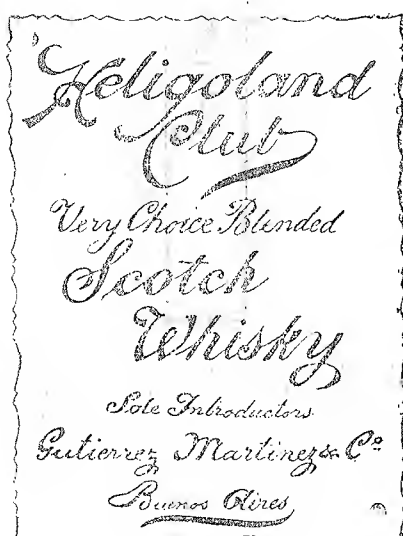 Heligoland
Club
Very Choice Blended
Scotch
Whisky
Sole Introductors
Gutierrez Martinez & Cº
Buenos Aires